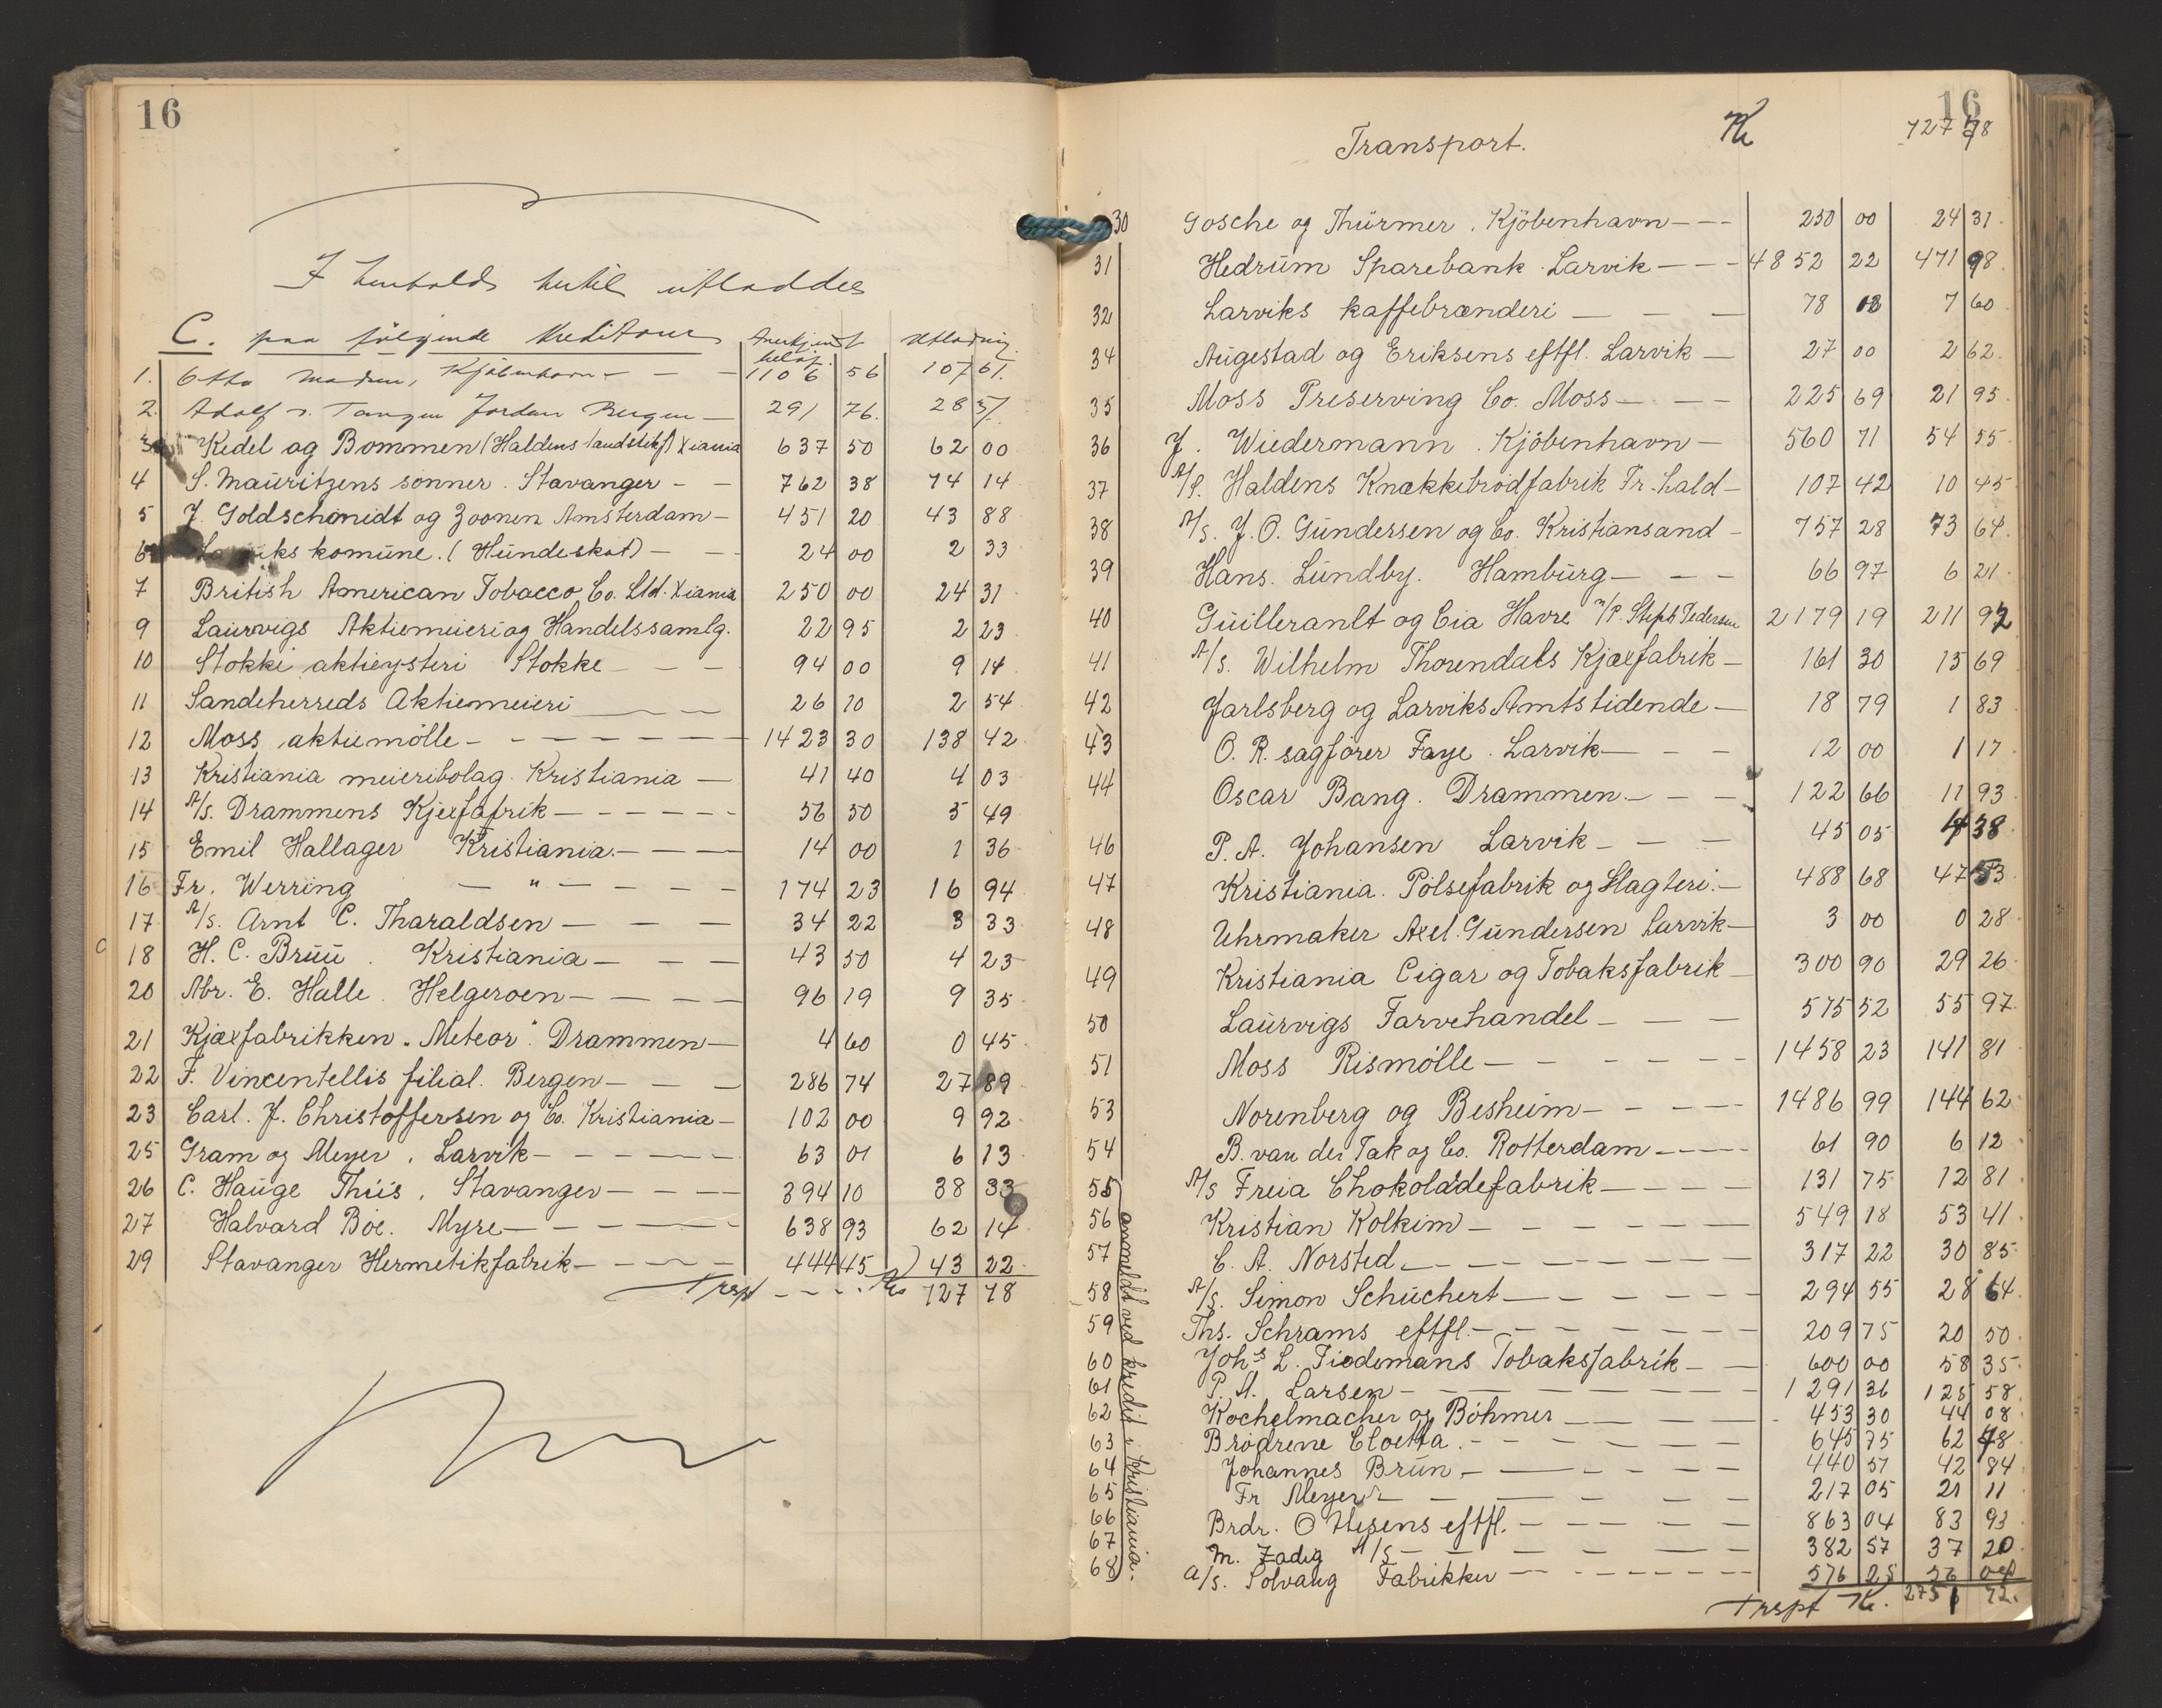 16
I henhold hertil utloddes
C. paa følgende kreditorer Anerkjendt beløp. Utlodning
1. Otto Madsen, Kjøbenhavn - - - 1106 56 107 61.
2. Adolf v. Tangen Jordan Bergen - 291 76. 28 37.
3 Kedel og Bommen (Haldens landstekf) Xiania 637 50 62 00
4 S. Mauritzens sønner. Stavanger - - 762 38 74 14
5 J. Goldschmidt og Zoonen Amsterdam - 451 20 43 88
6 Larviks komune. (Hundeskat) - - 24 00 2 33
7 British American Tobacco Co. Ltd. Xiania 250 00 24 31
9 Laurvigs Aktiemeieri og Handelssamlg. 22 95 2 23
10 Stokke aktieysteri Stokke - - - 94 00 9 14
11 Sandeherreds Aktiemeieri - - - 26 10 2 54
12 Moss aktiemølle - - - - - - - 1423 30 138 42
13 Kristiania meieribolag. Kristiania - 41 40 4 03
14 A/S. Drammens Kjexfafrik - - - - - - 56 50 5 49
15 Emil Hallager Kristiania. - - - 14 00 1 36
16 Fr. Werring - " - - - - - 174 23 16 94
17 A/S. Arnt C. Tharaldsen - - - - 34 22 3 33
18 H. C. Bruu. Kristiania - - - 43 50 4 23
20 Abr. E. Halle. Helgeroen - - - - 96 19 9 35
21 Kjæxfabrikken „Meteor". Drammen - 4 60 0 45
22 F. Vincentellis filial. Bergen - - - 286 74 27 89
23 Carl. J. Christoffersen og Co. Kristiania - 102 00 9 92
25 Gram og Meyer, Larvik - - - - - 63 01 6 13
26 C. Hauge Thiis, Stavanger - - - - 394 10 38 33
27 Halvard Böe. Myre - - - - - - 638 93 62 14
29 Stavanger Hermetikfabrik - - - - - 444 45 43 22
Trspt - - - - Kr 727 78
16
Transport. Kr 727 78
30 Gosche og Thürmer. Kjöbenhavn - - - 250 00 24 31
31 Hedrum Sparebank Larvik - - - 4852 22 471 98
32 Larviks kaffebrænderi - - - 78 08 7 60
34 Augestad og Eriksens eftfl. Larvik - 27 00 2 62
35 Moss Preserving Co. Moss - - - 225 69 21 95
36 J. Wiedermann. Kjöbenhavn - 560 71 54 55
37 A/S. Haldens Knækkebrödfabrik Fr. hald - 107 42 10 45
38 A/S. J. O. Gundersen og Co. Kristiansand - 757 28 73 64
39 Hans. Lundby. Hamburg - - - 66 97 6 21
40 Guilleranlt og Cia Havre v/P. Steph Pedersen 2179 19 211 92
41 A/S. Wilhelm Thorendals Kjæxfabrik - 161 30 15 69
42 Jarlsberg og Larviks Amtstidende - 18 79 1 83
43 O. R. sagförer Faye. Larvik - - - 12 00 1 17
44 Oscar Bang. Drammen. - - - 122 66 11 93
46 P. A. Johansen Larvik - - - 45 05 4 38
47 Kristiania. Pölsefabrik og Slagteri. - 488 68 47 53
48 Uhrmaker Axel. Gundersen Larvik - 3 00 0 28
49 Kristiania Cigar og Tobaksfabrik - 300 90 29 26
50 Laurvigs Farvehandel - - - 575 52 55 97
51 Moss Rismölle - - - - - - 1458 23 141 81
53 Norenberg og Besheim - - - - - 1486 99 144 62
54 B. van der Tak og Co. Rotterdam - - - - 61 90 6 12
55 A/S Freia Chokoladefabrik - - - - 131 75 12 81
56 Kristian Kolkim - - - - - - - 549 18 53 41
57 C. A. Norsted - - - - - - - - 317 22 30 85
58 A/S. Simon Schuchert - - - - - - 294 55 28 64
59 Ths. Schrams eftfl. - - - - - - - 209 75 20 50
60 Johs L. Tiedemans Tobaksfabrik - - 600 00 58 35
61 P. A. Larsen - - - - - - - - 1291 36 125 58
62 Kochelmacher og Böhmer - - - - - 453 30 44 08
63 Brödrene Cloetta. - - - - - - - 645 75 62 78
64 Johannes Brun - - - - - - 440 57 42 84
65 Fr Meyer - - - - - - 217 05 21 11
66 Brdr. Ottesens eftfl. - - - - - - 863 04 83 93
67 M. Zadig A/S - - - - - - 382 57 37 20
68 A/S. Solvang Fabrikker - - - - - - 576 25 56 04
anmeldt ved kredit i Kristiania.
Trspt Kr. 2751 72.